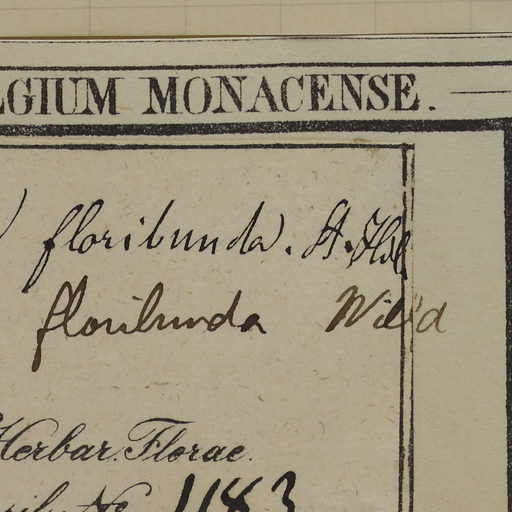 LGIUM MONACENSE.
floribunda. St. Hil
floribunda Willd
Herbar. Florae
No 1183